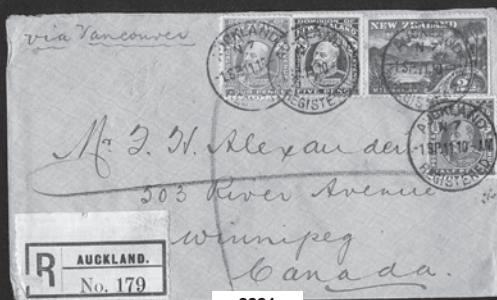 via Vancouver
DOMINION OF
NEW ZEALAND
FIVE PENCE
NEW ZEALAND
2
AUCKLAND
N.Z.
-1SP.11·10
REGISTERED
AUCKLAND
N.Z.
-1SP.11·10-AM
REGISTERED
Mr J. H. Alexander
503 River Avenue
Winnipeg
Canada.
R
AUCKLAND.
No. 179